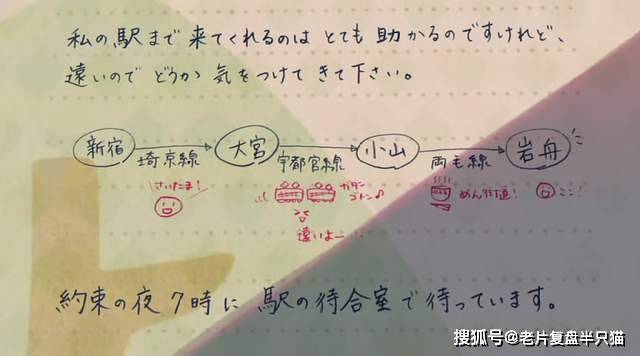 私の駅まで来てくれるのはとても助かるのですけれど、
遠いのでどうか気をつけてきて下さい。
新宿 埼京線 大宮 宇都宮線 小山 両毛線 岩舟
さいたま! ガタン ゴトン♪ めん街道! ここ!
遠いよー…
約束の夜7時に駅の待合室で待っています。
搜狐号@老片复盘半只猫